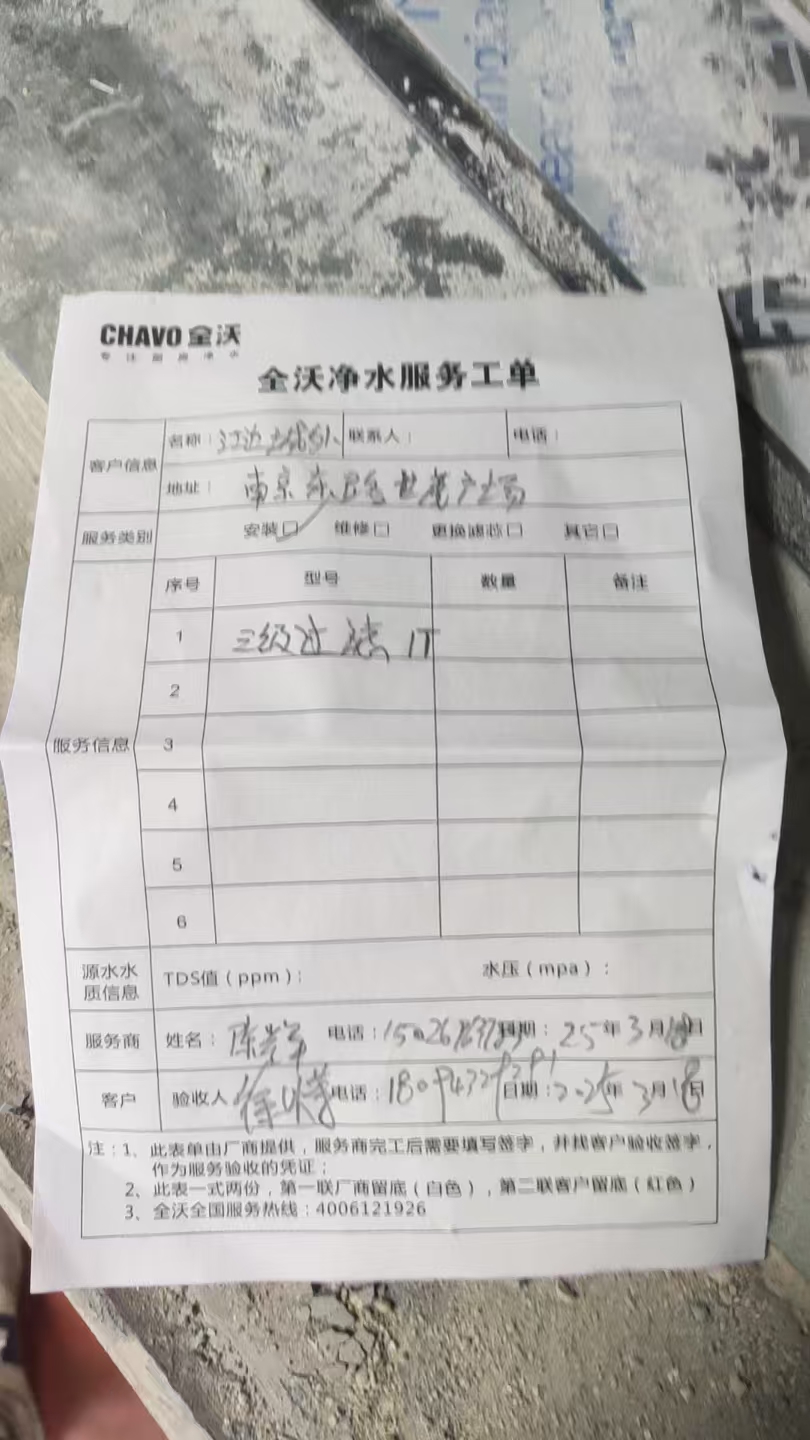 CHAVO 全沃
专注厨房净水
全沃净水服务工单
客户信息 名称：江边城外 联系人： 电话：
地址：南京东路世茂广场
服务类别 安装□ 维修□ 更换滤芯□ 其它□
序号 型号 数量 备注
服务信息
1 三级过滤 1T
2
3
4
5
6
源水水质信息 TDS值（ppm）： 水压（mpa）：
服务商 姓名：陈 电话：15026 日期：25年3月18日
客户 验收人 电话：1809432 日期：2025年3月18日
注：1、此表单由厂商提供，服务商完工后需要填写签字，并找客户验收签字，
作为服务验收的凭证；
2、此表一式两份，第一联厂商留底（白色），第二联客户留底（红色）
3、全沃全国服务热线：4006121926